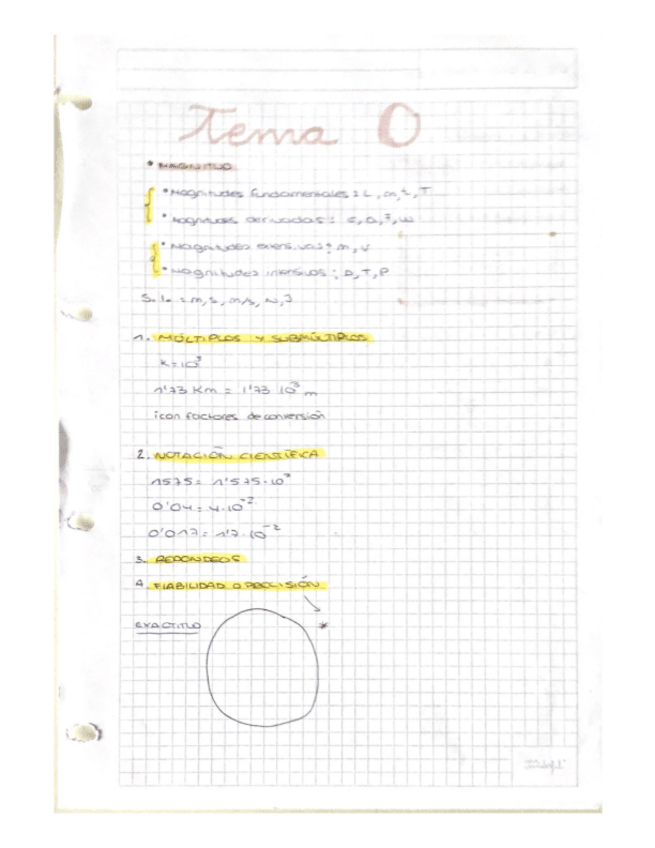 Tema 0
• MAGNITUD
• Magnitudes fundamentales: L, m, t, T
• Magnitudes derivadas:
• Magnitudes extensivas: m, V
• Magnitudes intensivas: D, T, P
S.I. = m, s, m/s, N, J
1. MÚLTIPLOS Y SUBMÚLTIPLOS
K = 10³
1'73 Km = 1'73 10³ m
¡con factores de conversión
2. NOTACIÓN CIENTÍFICA
1575 = 1'575·10³
0'04 = 4·10⁻²
0'017 = 1'7·10⁻²
3. REDONDEOS
4. FIABILIDAD O PRECISIÓN
EXACTITUD *